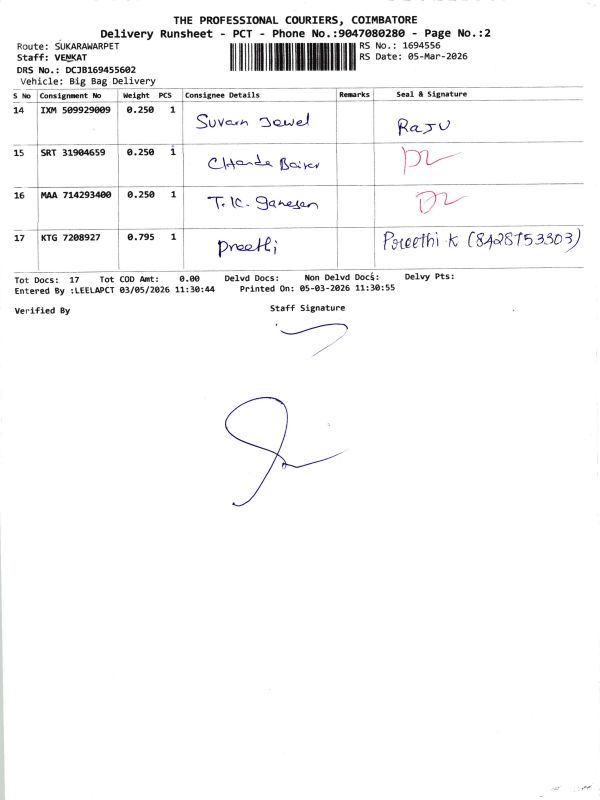 THE PROFESSIONAL COURIERS, COIMBATORE
Delivery Runsheet - PCT - Phone No.:9047080280 - Page No.:2
Route: SUKARAWARPET
Staff: VENKAT
DRS No.: DCJB169455602
Vehicle: Big Bag Delivery
RS No.: 1694556
RS Date: 05-Mar-2026
S No Consignment No Weight PCS Consignee Details Remarks Seal & Signature
14 IXM 509929009 0.250 1 Suvarn Jewel RAJU
15 SRT 31904659 0.250 1
16 MAA 714293400 0.250 1 T.K. Ganesan
17 KTG 7208927 0.795 1 Preethi Preethi-K (8428753303)
Tot Docs: 17 Tot COD Amt: 0.00 Delvd Docs: Non Delvd Docs: Delvy Pts:
Entered By :LEELAPCT 03/05/2026 11:30:44 Printed On: 05-03-2026 11:30:55
Verified By Staff Signature